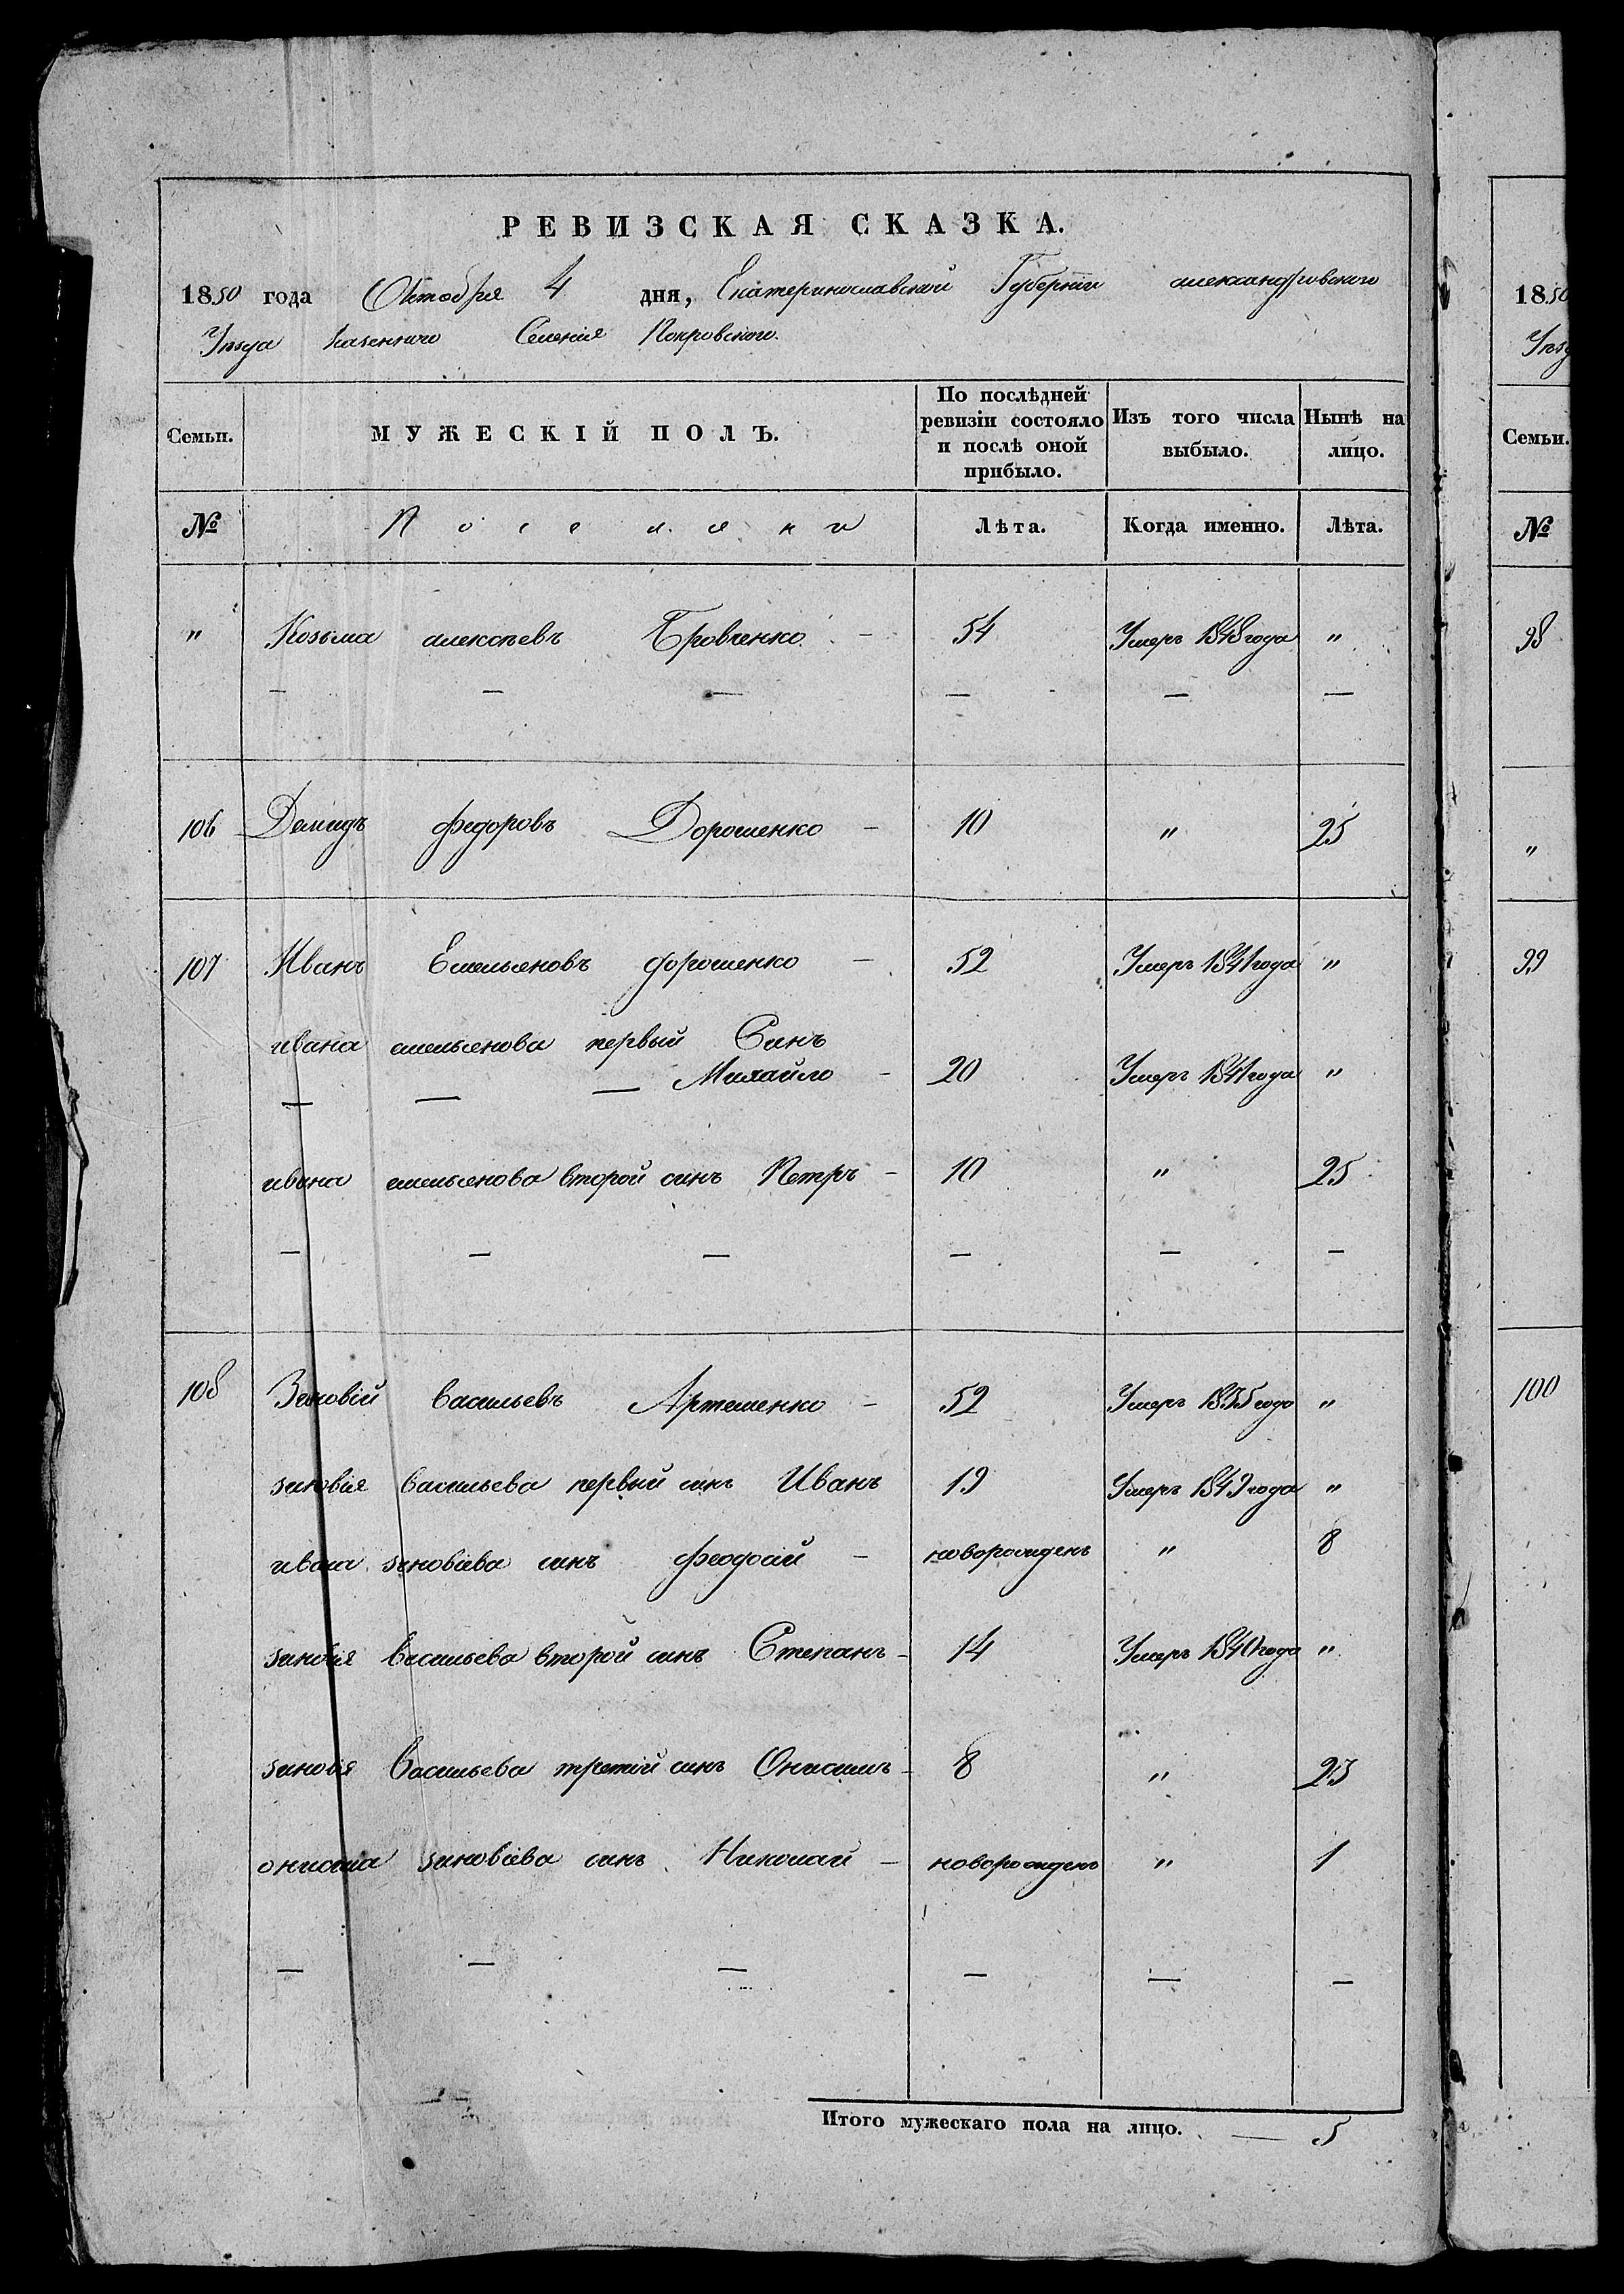 РЕВИЗСКАЯ СКАЗКА.
1850 года Октября 4 дня, Екатеринославской Губерніи александровского
Уѣзда казенного Селенія Покровского.
Семьи. МУЖЕСКІЙ ПОЛЪ. По послѣдней ревизіи состояло и послѣ оной прибыло. Изъ того числа выбыло. Нынѣ на лицо.
№ Поселяни Лѣта. Когда именно. Лѣта.
" Козьма алексѣевъ Бровченко. - 54 Умеръ 1848 года "
— — — — — —
106 Демидъ федоровъ Дорошенко - 10 " 25
107 Иванъ Емельеновъ дорошенко - 52 Умеръ 1841 года "
ивана емельенова первый Синъ
— — — Михайло - 20 Умеръ 1841 года "
ивана емельенова второй синъ Петръ - 10 " 25
— — — — — —
108 Зиновій васильевъ Артеменко - 52 Умеръ 1835 года "
зиновія васильева первый синъ Иванъ 19 Умеръ 1849 года "
ивана зиновіева синъ феодосій - новорожденъ " 8
зиновія васильева второй синъ Степанъ - 14 Умеръ 1840 года "
зиновія васильева третій синъ Онисимъ - 8 " 23
онисима зиновіева синъ Николай - новорожденъ " 1
— — — — — —
Итого мужескаго пола на лицо. — 5
1850
Уѣз
Семьи.
№
98
"
99
100